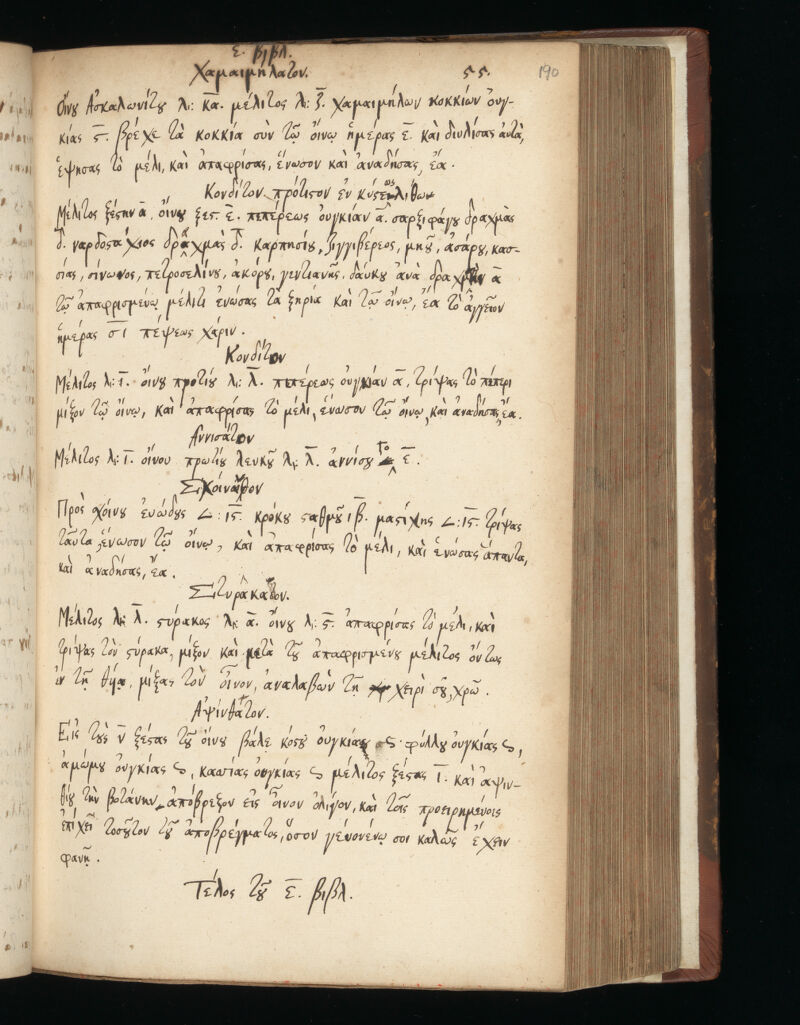 ε. βιβλ.
Χαμαιμήλατον. 55. 190
Οἴνου Ἀσκαλωνίτου λι: κα. μέλιτος λι: ζ. χαμαιμήλων κοκκίων οὐγ-
κίας ς. βρέχε τὰ κοκκία σὺν τῷ οἴνῳ ἡμέρας ε. καὶ διυλίσας αὐτὰ,
ἑψησας τὸ μέλι, καὶ ἀπαφρίσας, ἕνωσον καὶ ἀναδήσας, ἔα.
Κονδῖτον πρότιστον ἐν
Μέλιτος ξέστην α. οἴνου ξες. ε. πεπέρεως οὐγκίαν α. σαρξιφάγου δραχμὰς
δ. ναρδοστάχιος δραχμὰς δ. καρπησίου, ζιγγιβέρεος, μηοῦ, ἀσάρου, κασ-
σίας, σίνωνος, πετροσελίνου, ἀκόρου, γεντιανῆς, δαύκου ἀνὰ δραχμὴν α
τῷ ἀπαφρισμένῳ μέλιτι ἑνώσας τὰ ξηρία καὶ τῷ οἴνῳ, ἔα τὸ ἀγγεῖον
ἡμέρας ςι πέψεως χάριν.
Κονδῖτον
Μέλιτος λι: ι. οἴνου πρωτίου λι: λ. πεπέρεως οὐγκίαν α, τρίψας τὸ πέπερι
μίξον τῷ οἴνῳ, καὶ ἀπαφρίσας τὸ μέλι, ἕνωσον τῷ οἴνῳ, καὶ ἀναδήσας, ἔα.
Ἀννισᾶτον
Μέλιτος λι: ι. οἴνου πρωτίου λευκοῦ λι: λ. ἀννίσου Γο ε.
Σχοινάνθον
Πρὸς σχοίνου εὐώδους ∠: ις. κρόκου σταθμοῦ ιβ. μαστίχης ∠: ις. τρίψας
ταῦτα, ἕνωσον τῷ οἴνῳ, καὶ ἀπαφρίσας τὸ μέλι, καὶ ἑνώσας ἅπαντα,
καὶ ἀναδήσας, ἔα.
Στυρακᾶτον.
Μέλιτος λι: λ. στύρακος λι: α. οἴνου λι: ς. ἀπαφρίσας τὸ μέλι, καὶ
τρίψας τὸν στύρακα, μίξον καὶ μετὰ τοῦ ἀπαφρισμένου μέλιτος ὄντως
ἐν τῇ θυίᾳ, μίξας τὸν οἶνον, ἀναλαβὼν τῇ χειρὶ σοῦ, χρῶ.
Ἀψινθᾶτον.
Εἰς τοὺς ν ξέστας τοῦ οἴνου βάλε κόστου οὐγκίας ς. φύλλου οὐγκίας ς,
ἀμώμου οὐγκίας ς, κασσίας οὐγκίας ς μέλιτος ξέστας ι. καὶ ἀψιν-
θίου τὴν βοτάνην ἀπόβρεξον εἰς οἶνον ὀλίγον, καὶ τοῖς προειρημένοις
ἐπίχει τοσοῦτον τοῦ ἀποβρέγματος, ὅσον γευομένῳ σοι καλῶς ἔχειν
φανῇ.
Τέλος τοῦ ε. βιβλ.